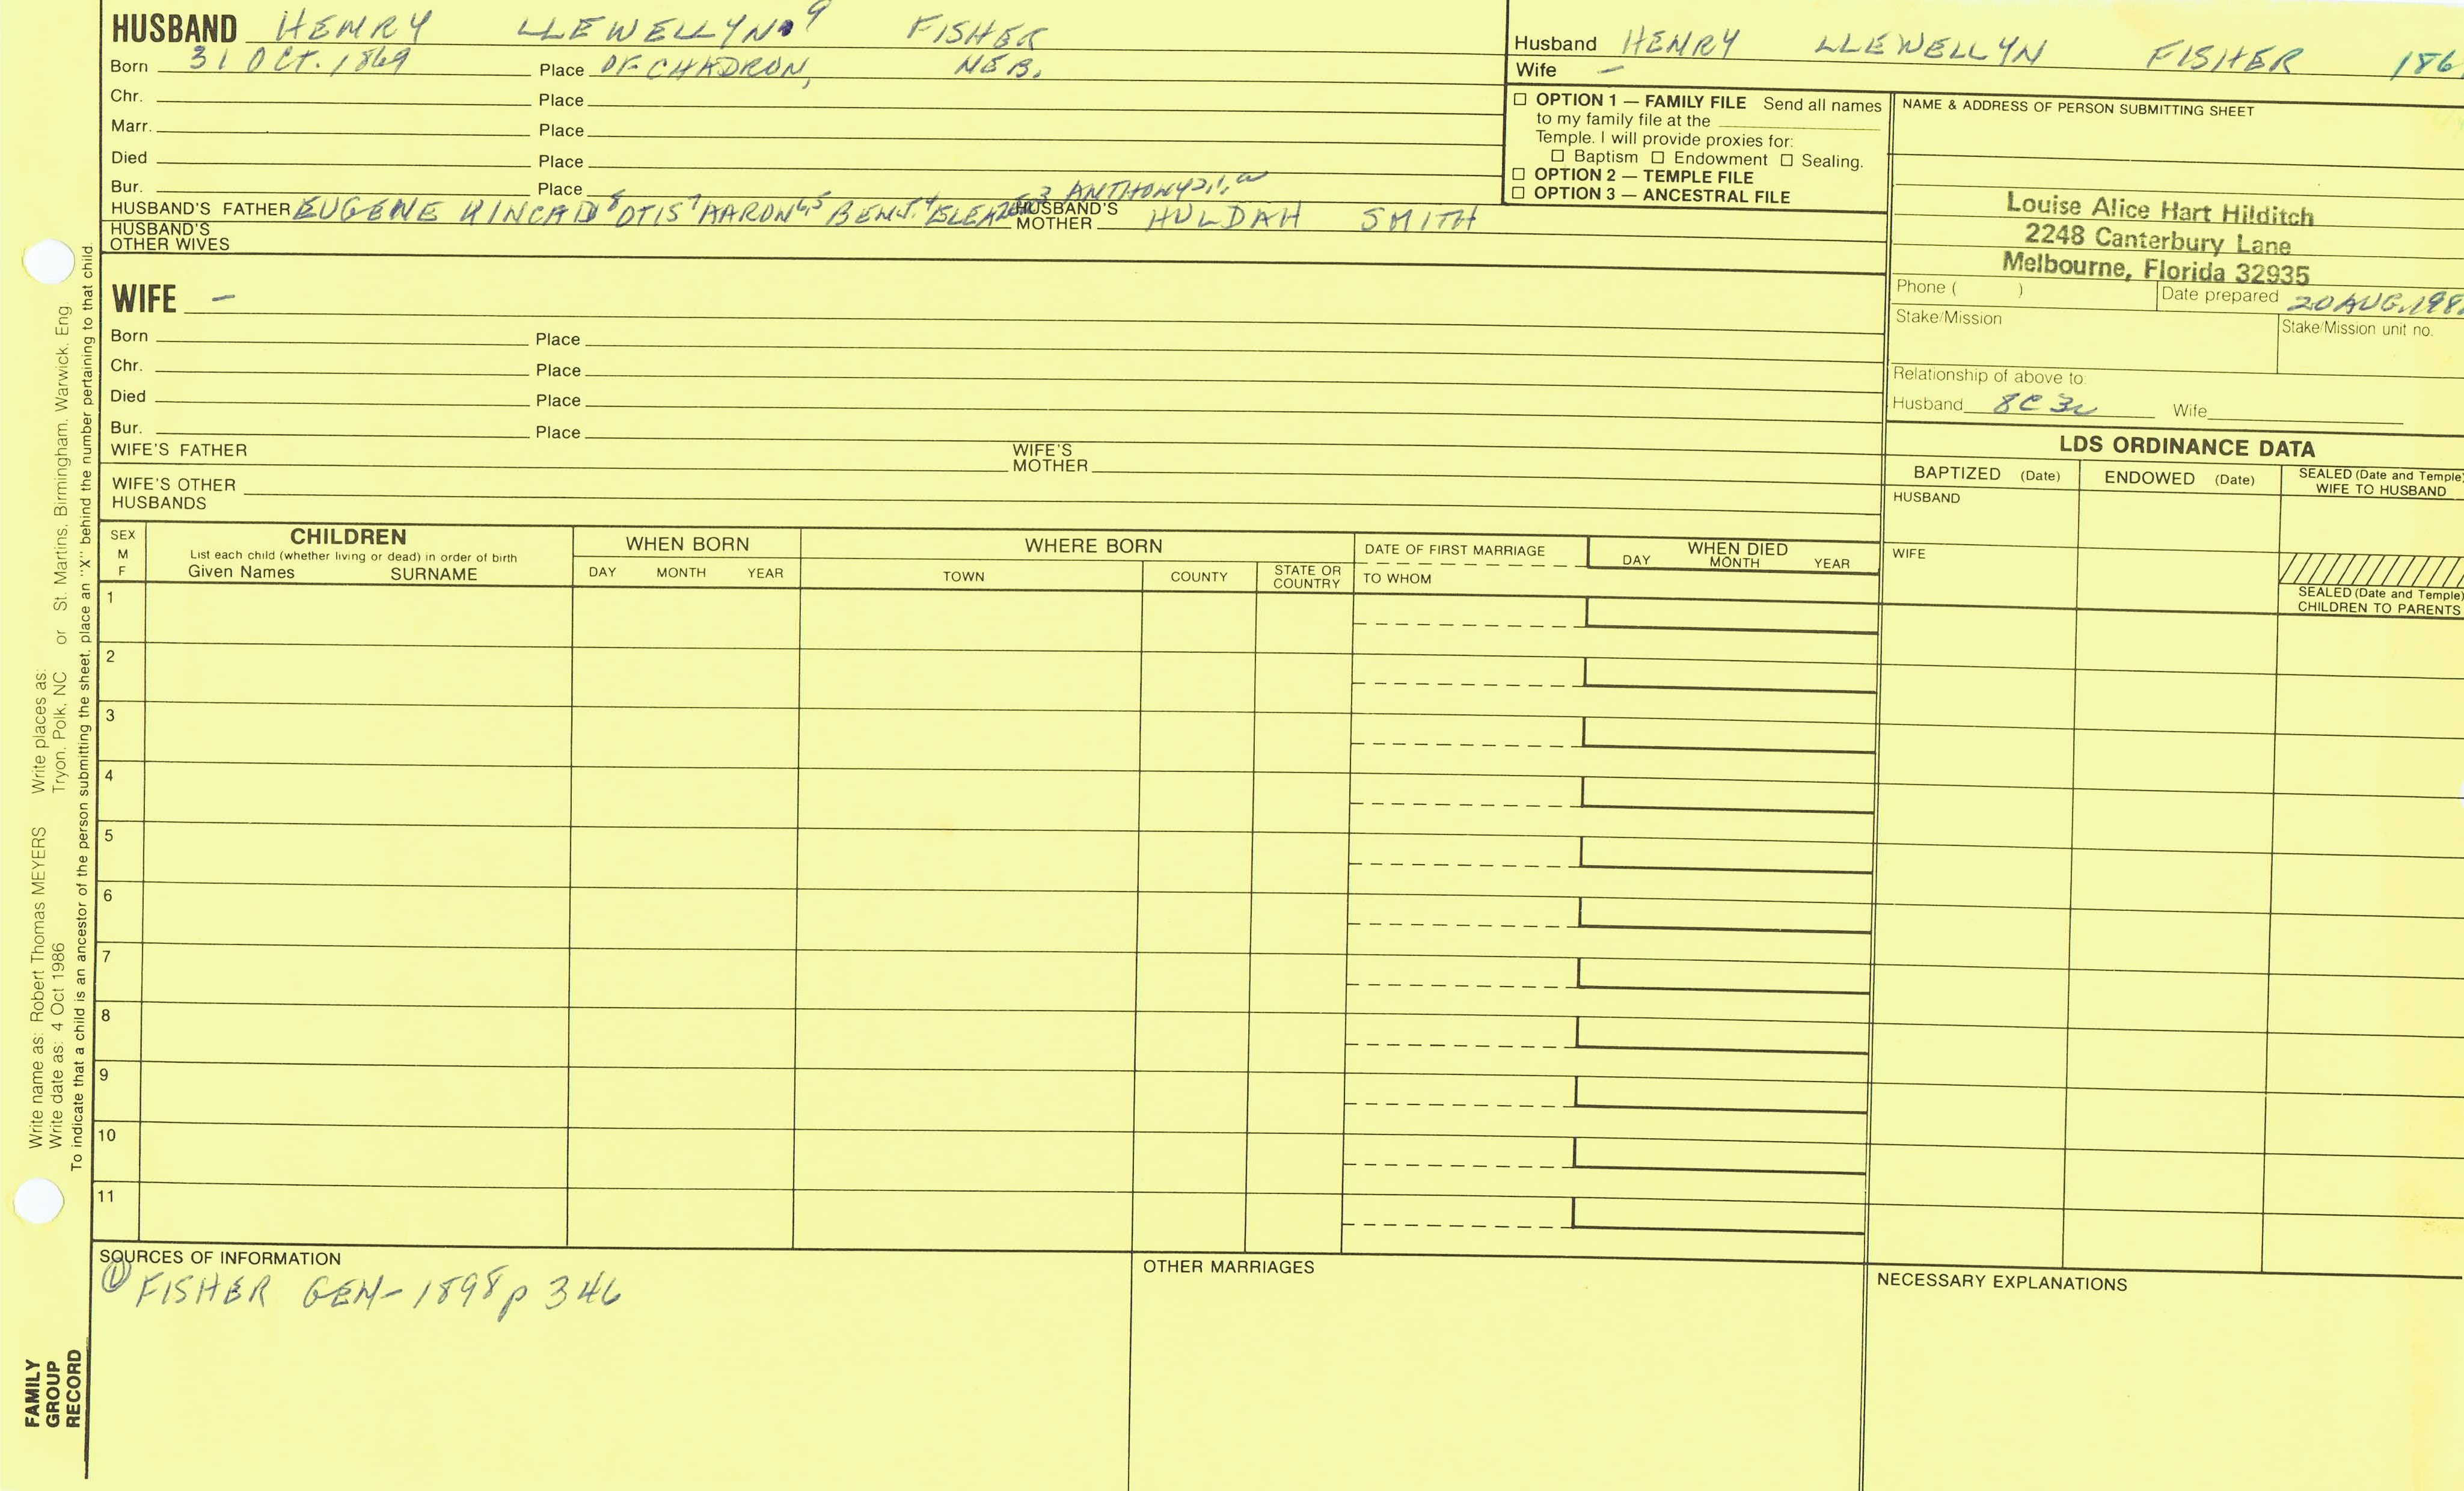 HUSBAND HENRY LLEWELLYN 9 FISHER
Born 31 OCT. 1869 Place OF CHADRON, NEB.
Chr. Place
Marr. Place
Died Place
Bur. Place
HUSBAND'S FATHER EUGENE KINCAID 8 OTIS 7 AARON 6,5 BENJ. 4 ELEAZER 3 ANTHONY 2,1,
HUSBAND'S MOTHER HULDAH SMITH
HUSBAND'S OTHER WIVES
Husband HENRY LLEWELLYN FISHER 186
Wife –
☐ OPTION 1 — FAMILY FILE Send all names
to my family file at the
Temple. I will provide proxies for:
☐ Baptism ☐ Endowment ☐ Sealing.
☐ OPTION 2 — TEMPLE FILE
☐ OPTION 3 — ANCESTRAL FILE
NAME & ADDRESS OF PERSON SUBMITTING SHEET
Louise Alice Hart Hilditch
2248 Canterbury Lane
Melbourne, Florida 32935
Phone ( ) Date prepared 20 AUG. 198
Stake/Mission Stake/Mission unit no.
Relationship of above to:
Husband 8C 3 Wife
WIFE –
Born Place
Chr. Place
Died Place
Bur. Place
WIFE'S FATHER WIFE'S MOTHER
WIFE'S OTHER
HUSBANDS
LDS ORDINANCE DATA
BAPTIZED (Date) ENDOWED (Date) SEALED (Date and Temple)
WIFE TO HUSBAND
HUSBAND
WIFE
SEALED (Date and Temple)
CHILDREN TO PARENTS
SEX
M
F
CHILDREN
List each child (whether living or dead) in order of birth
Given Names SURNAME
WHEN BORN
DAY MONTH YEAR
WHERE BORN
TOWN COUNTY STATE OR COUNTRY
DATE OF FIRST MARRIAGE
TO WHOM
WHEN DIED
DAY MONTH YEAR
1
2
3
4
5
6
7
8
9
10
11
SOURCES OF INFORMATION
① FISHER GEN- 1898 p 346
OTHER MARRIAGES
NECESSARY EXPLANATIONS
Write name as: Robert Thomas MEYERS Write places as:
Write date as: 4 Oct 1986 Tryon, Polk, NC or St. Martins, Birmingham, Warwick, Eng
To indicate that a child is an ancestor of the person submitting the sheet, place an "X" behind the number pertaining to that child.
FAMILY
GROUP
RECORD